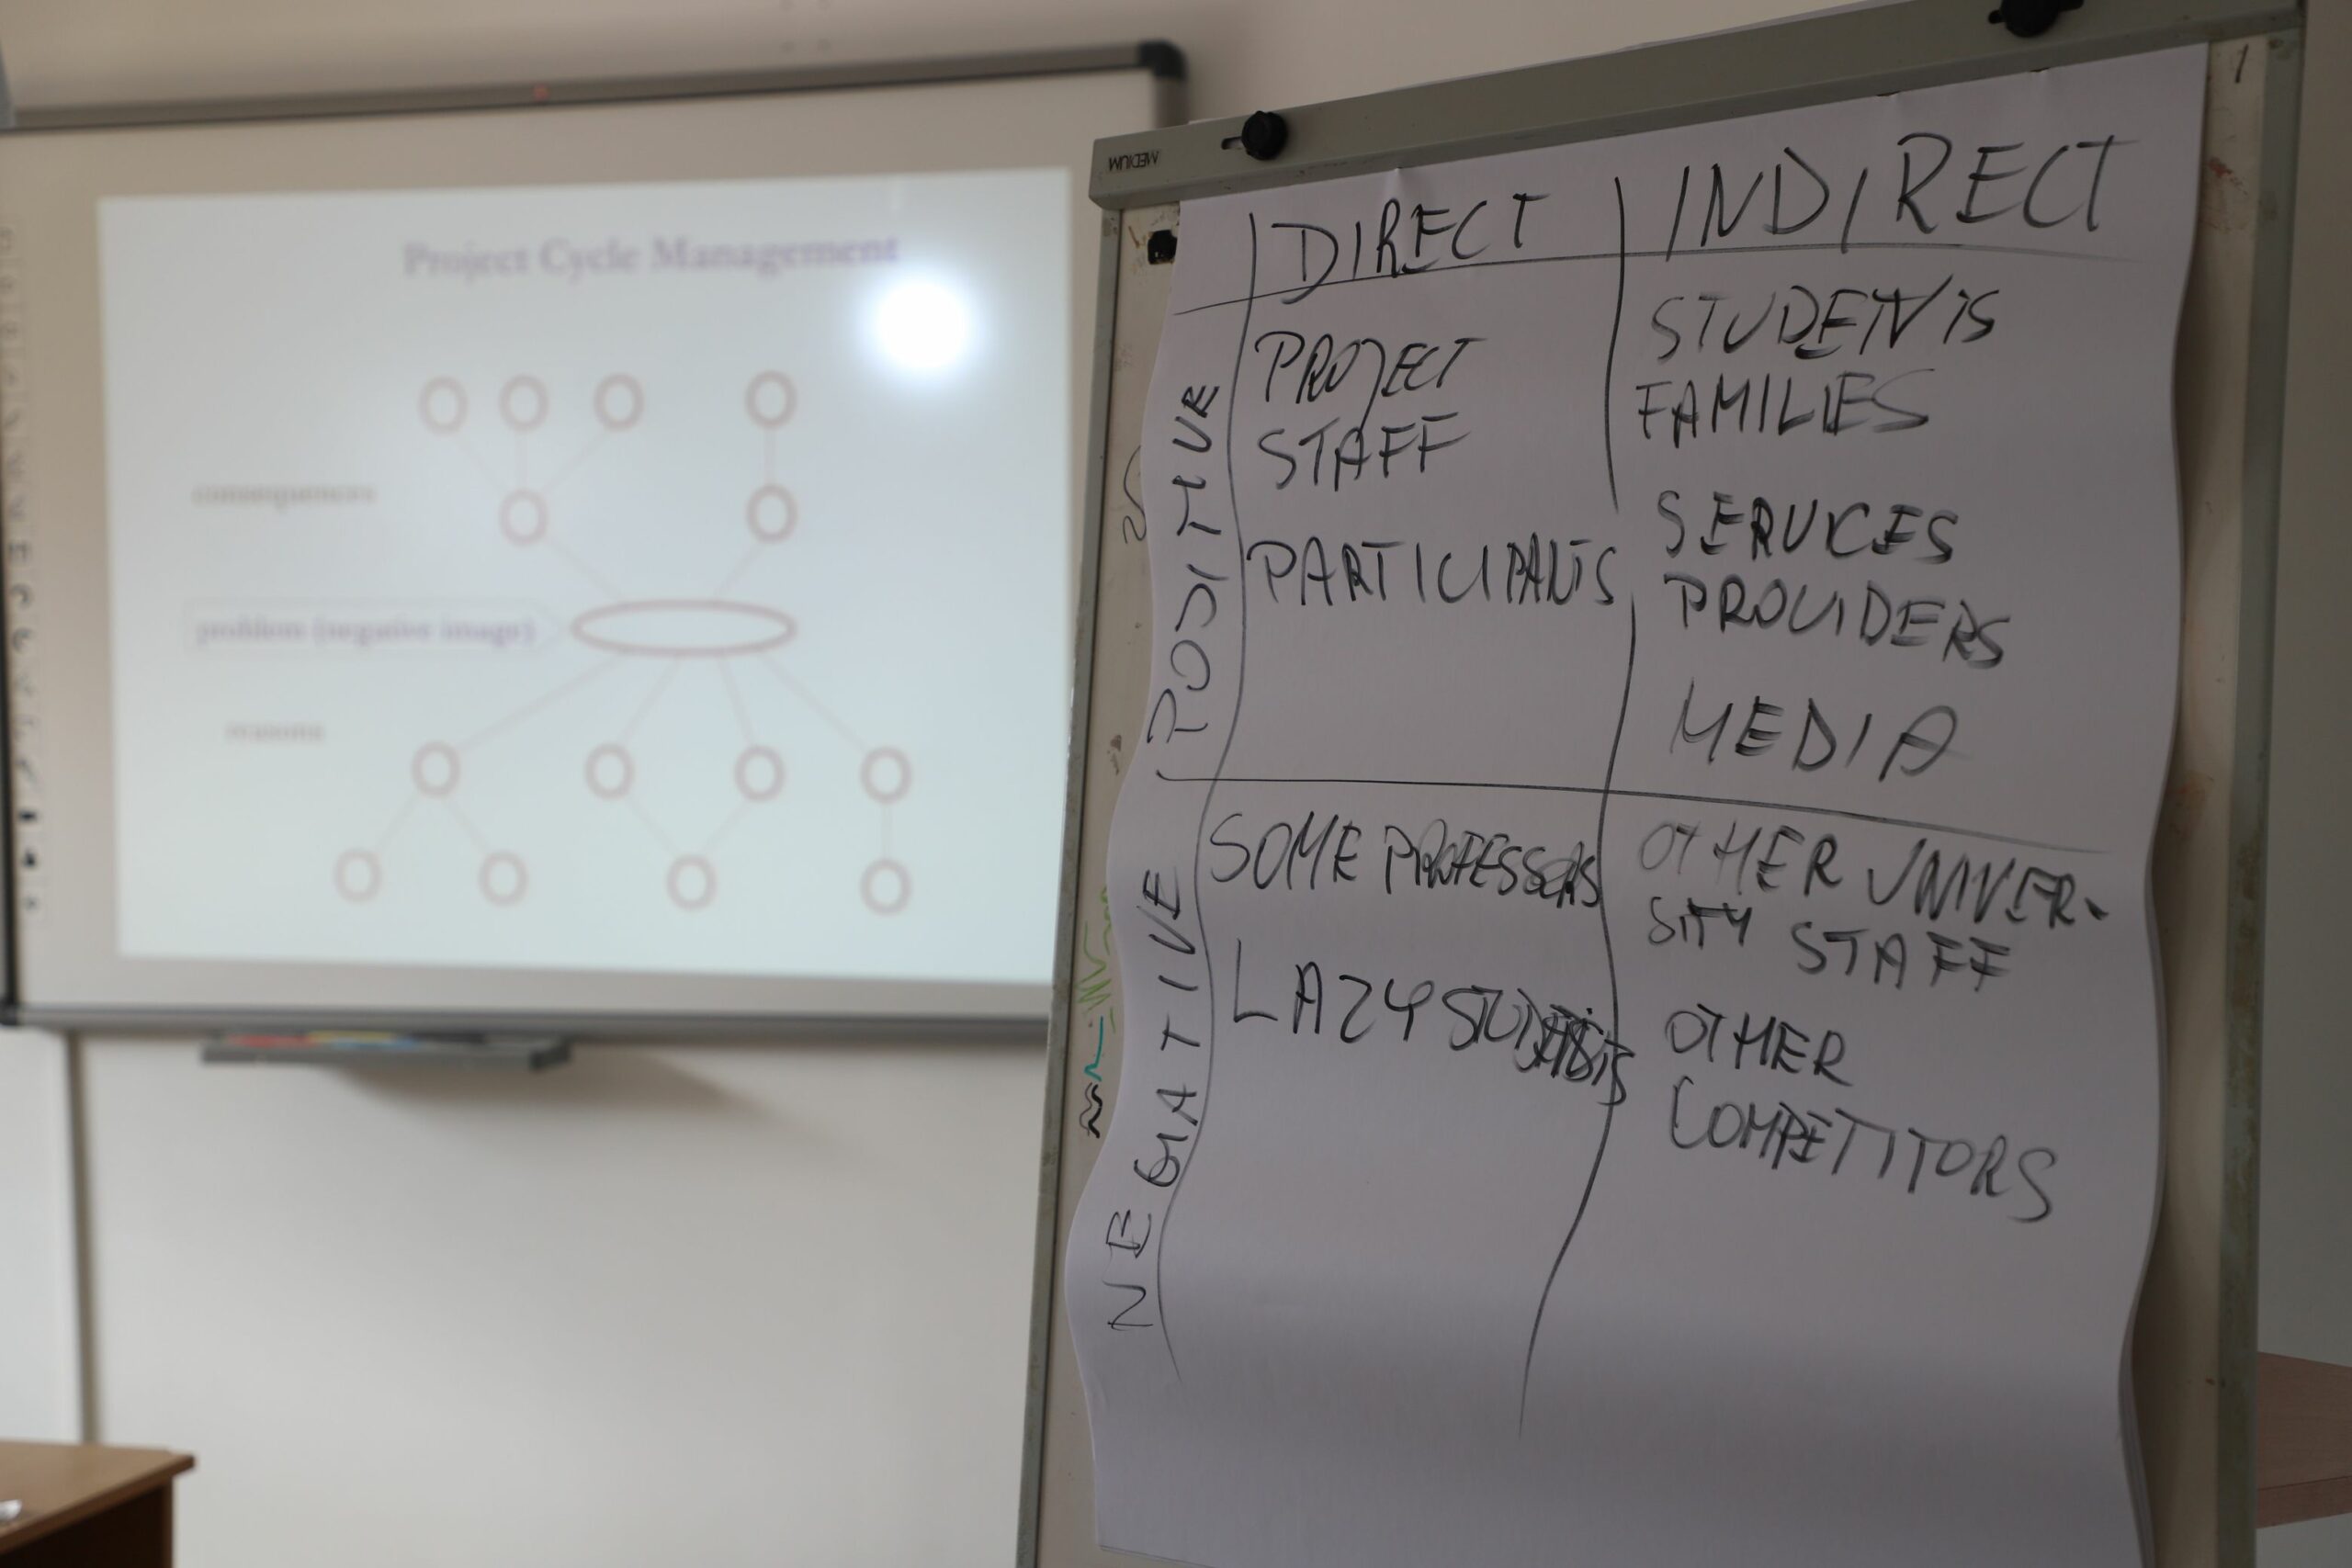 Project Cycle Management
consequences
problem (negative image)
reasons
MEDIUM
DIRECT
INDIRECT
POSITIVE
PROJECT
STAFF
PARTICIPANTS
STUDENTS
FAMILIES
SERVICES
PROVIDERS
MEDIA
NEGATIVE
SOME PROFESSORS
LAZY STUDENTS
OTHER UNIVER-
SITY STAFF
OTHER
COMPETITORS